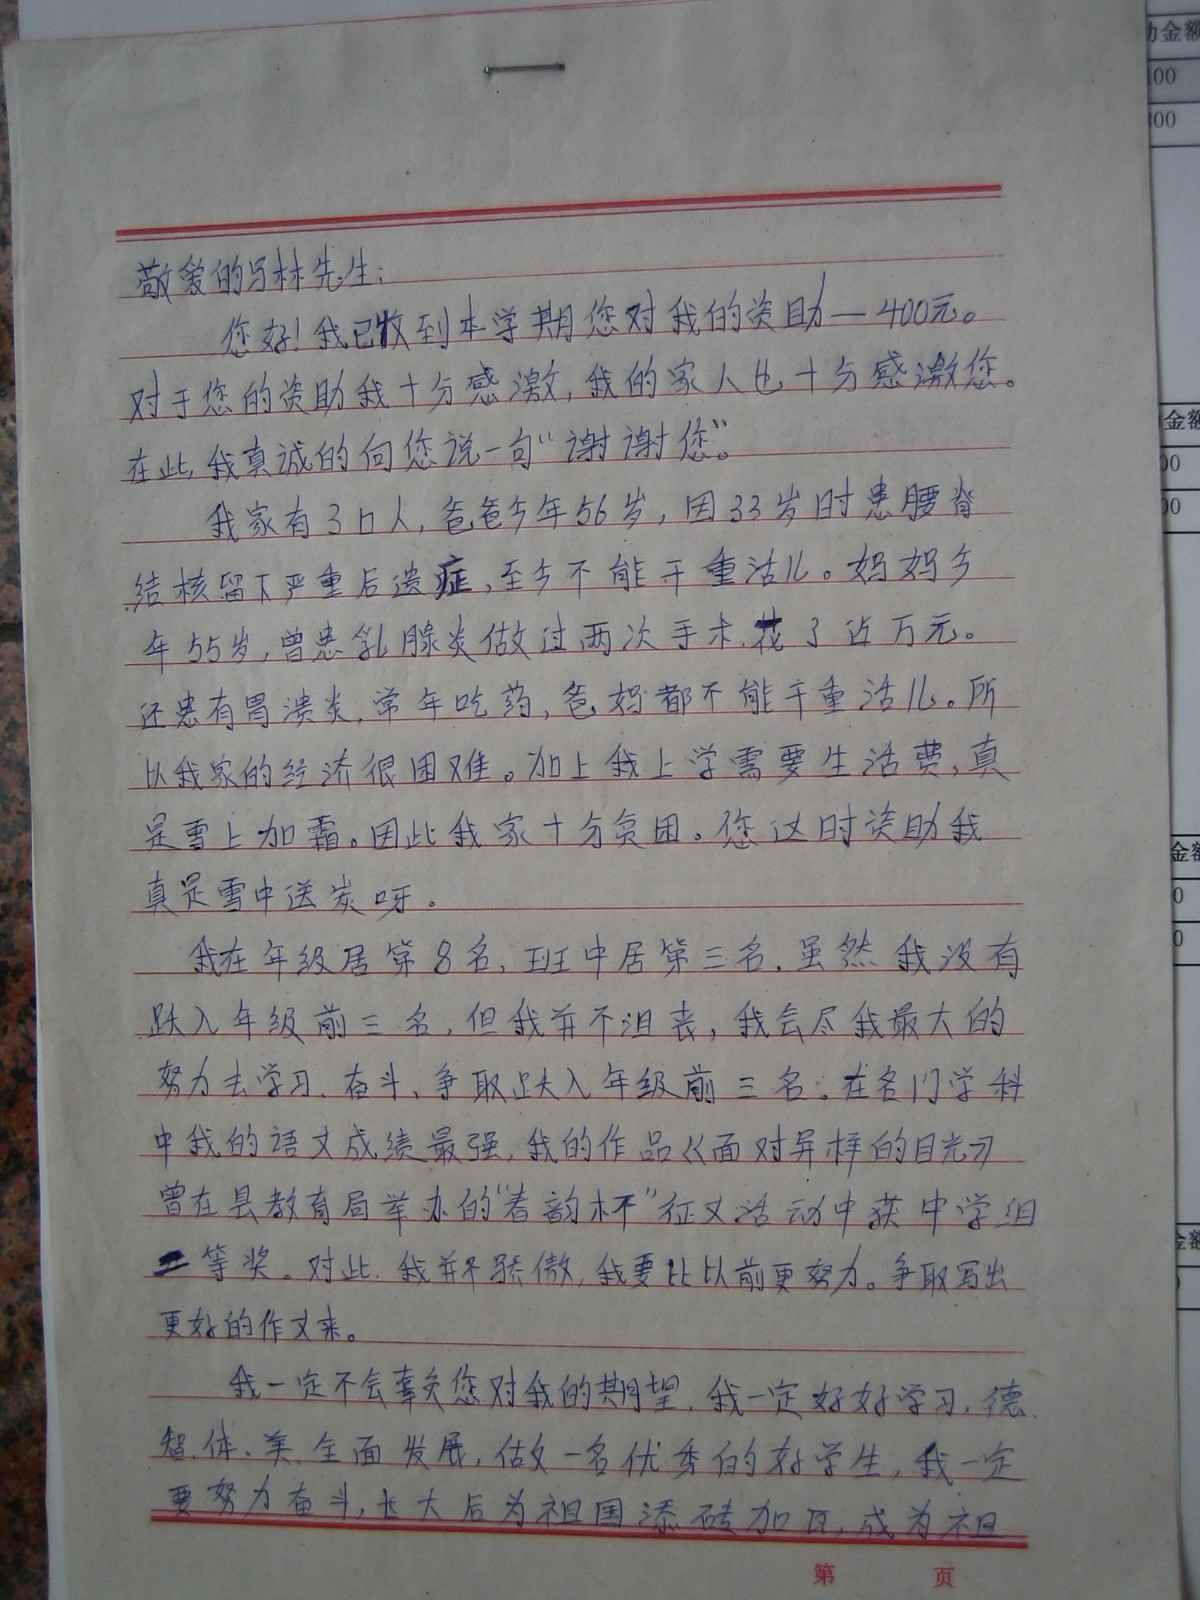 敬爱的马林先生：
您好！我已收到本学期您对我的资助—400元。
对于您的资助我十分感激，我的家人也十分感激您。
在此，我真诚的向您说一句“谢谢您”。
我家有3口人，爸爸今年56岁，因33岁时患腰脊
结核留下严重后遗症，至今不能干重活儿。妈妈今
年55岁，曾患乳腺炎做过两次手术，花了近万元。
还患有胃溃炎，常年吃药，爸妈都不能干重活儿。所
以我家的经济很困难。加上我上学需要生活费，真
是雪上加霜。因此我家十分贫困。您这时资助我
真是雪中送炭呀。
我在年级居第8名，班中居第三名，虽然我没有
跃入年级前三名，但我并不沮丧，我会尽我最大的
努力去学习、奋斗，争取跃入年级前三名。在各门学科
中我的语文成绩最强，我的作品《面对异样的目光》
曾在县教育局举办的“春韵杯”征文活动中获中学组
二等奖。对此，我并不骄傲，我要比以前更努力。争取写出
更好的作文来。
我一定不会辜负您对我的期望，我一定好好学习，德、
智、体、美、全面发展，做一名优秀的好学生，我一定
要努力奋斗，长大后为祖国添砖加瓦，成为祖
第 页
动金额
00
300
金额
00
00
金额
0
0
金额